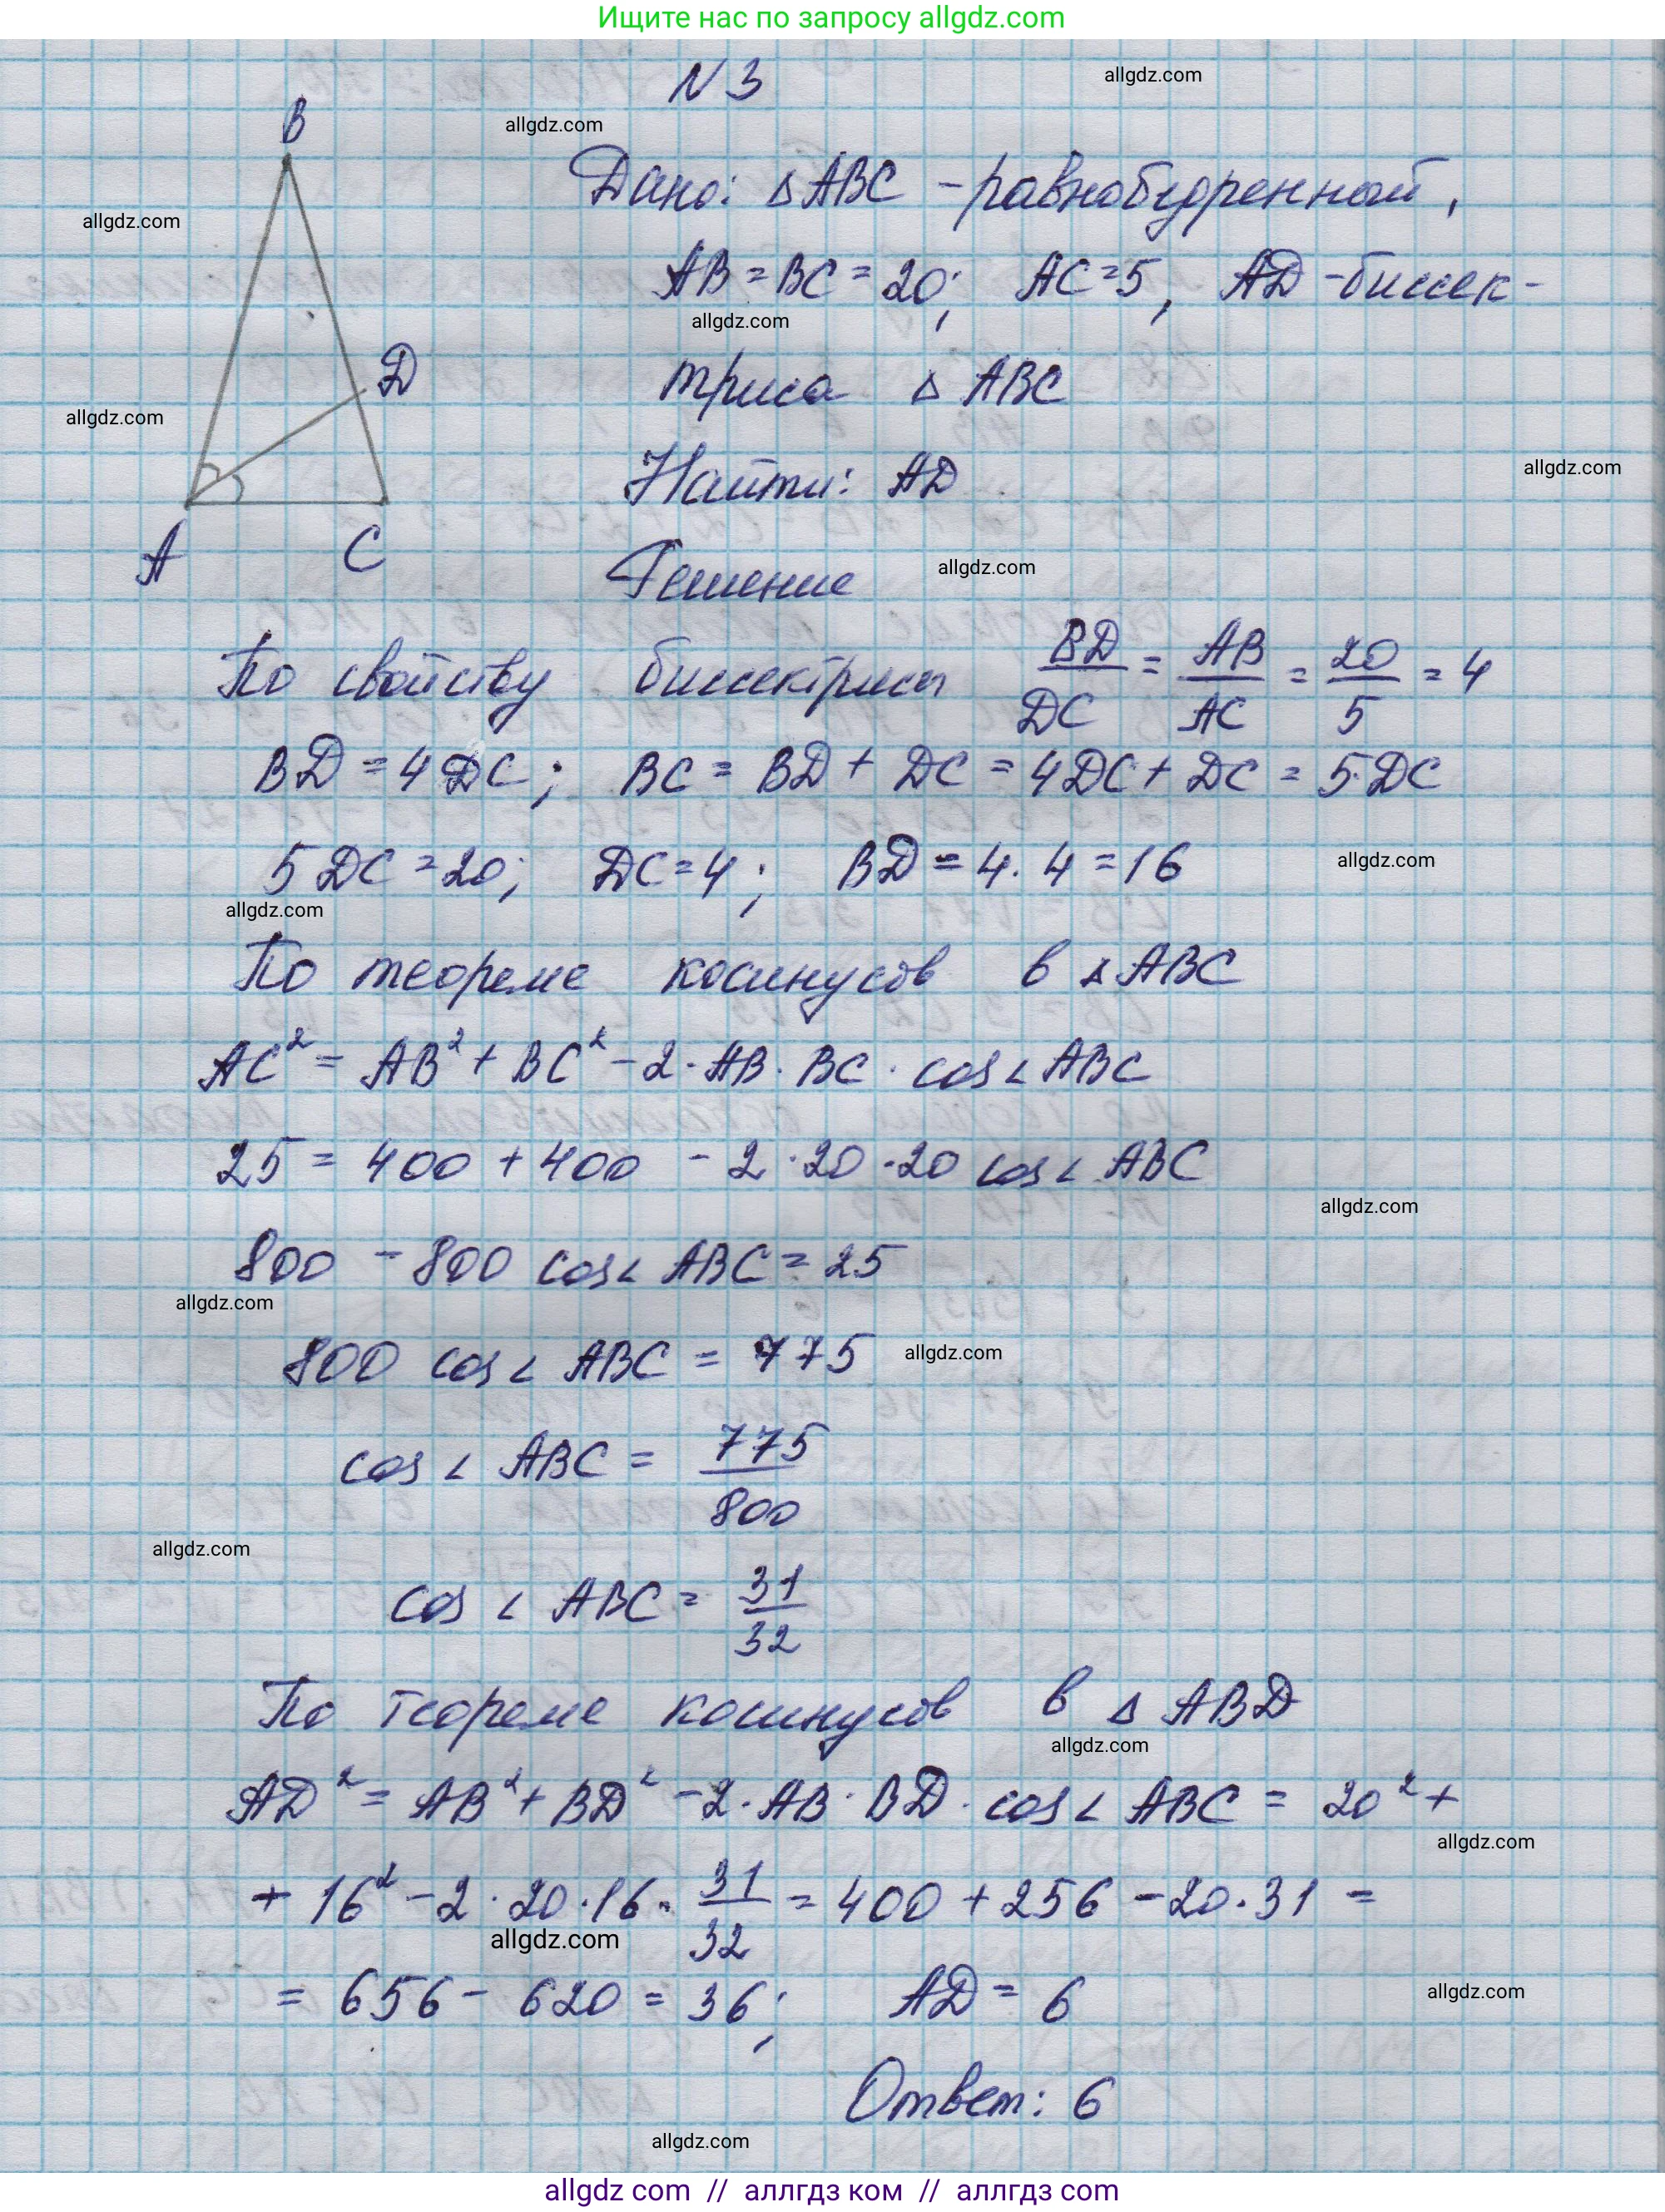 Ищите нас по запросу allgdz.com
N 3
allgdz.com
allgdz.com
B
Дано: △ABC - равнобедренный,
allgdz.com
AB = BC = 20; AC = 5, AD - биссек-
allgdz.com
D
триса △ ABC
allgdz.com
Найти: AD
allgdz.com
A C
Решение
allgdz.com
По свойству биссектрисы BD/DC = AB/AC = 20/5 = 4
BD = 4DC; BC = BD + DC = 4DC + DC = 5·DC
5DC = 20; DC = 4; BD = 4 · 4 = 16
allgdz.com
allgdz.com
По теореме косинусов в △ABC
AC² = AB² + BC² - 2 · AB · BC · cos∠ABC
25 = 400 + 400 - 2 · 20 · 20 cos∠ABC
allgdz.com
800 - 800 cos∠ABC = 25
allgdz.com
800 cos∠ABC = 775
allgdz.com
cos∠ABC = 775/800
allgdz.com
cos∠ABC = 31/32
По теореме косинусов в △ABD
allgdz.com
AD² = AB² + BD² - 2 · AB · BD · cos∠ABC = 20² +
allgdz.com
+ 16² - 2 · 20 · 16 · 31/32 = 400 + 256 - 20 · 31 =
allgdz.com
= 656 - 620 = 36; AD = 6
allgdz.com
Ответ: 6
allgdz.com
allgdz com // аллгдз ком // аллгдз com